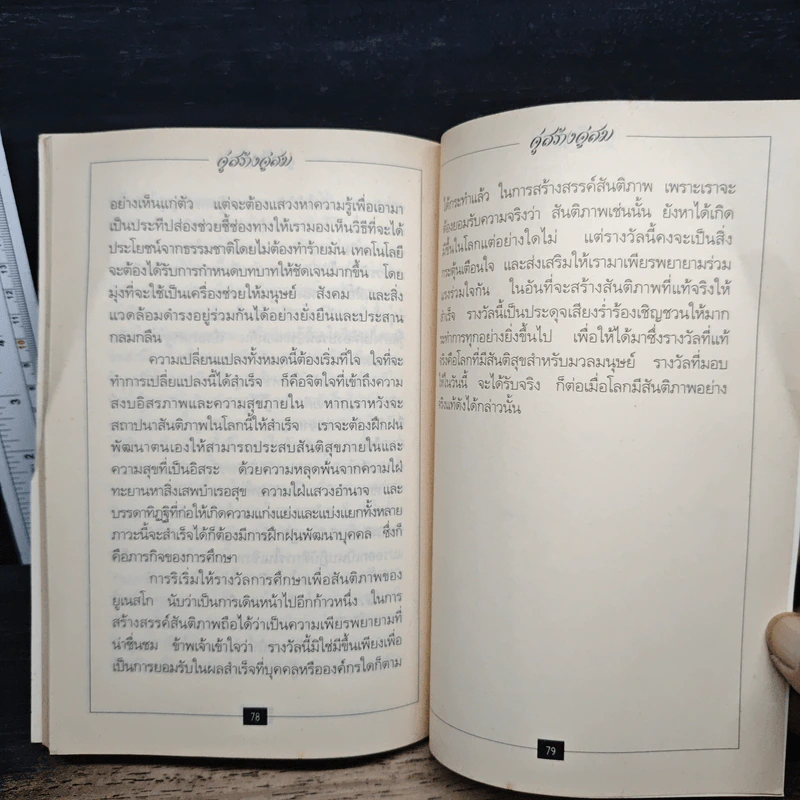 คู่สร้างคู่สม
อย่างเห็นแก่ตัว แต่จะต้องแสวงหาความรู้เพื่อเอามา
เป็นประทีปส่องช่วยชี้ช่องทางให้เรามองเห็นวิธีที่จะได้
ประโยชน์จากธรรมชาติโดยไม่ต้องทำร้ายมัน เทคโนโลยี
จะต้องได้รับการกำหนดบทบาทให้ชัดเจนมากขึ้น โดย
มุ่งที่จะใช้เป็นเครื่องช่วยให้มนุษย์ สังคม และสิ่ง
แวดล้อมดำรงอยู่ร่วมกันได้อย่างยั่งยืนและประสาน
กลมกลืน
ความเปลี่ยนแปลงทั้งหมดนี้ต้องเริ่มที่ใจ ใจที่จะ
ทำการเปลี่ยแปลงนี้ได้สำเร็จ ก็คือจิตใจที่เข้าถึงความ
สงบอิสรภาพและความสุขภายใน หากเราหวังจะ
สถาปนาสันติภาพในโลกนี้ให้สำเร็จ เราจะต้องฝึกฝน
พัฒนาตนเองให้สามารถประสบสันติสุขภายในและ
ความสุขที่เป็นอิสระ ด้วยความหลุดพ้นจากความใฝ่
ทะยานหาสิ่งเสพบำเรอสุข ความใฝ่แสวงอำนาจ และ
บรรดาทิฏฐิที่ก่อให้เกิดความแก่งแย่งและแบ่งแยกทั้งหลาย
ภาวะนี้จะสำเร็จได้ก็ต้องมีการฝึกฝนพัฒนาบุคคล ซึ่งก็
คือภารกิจของการศึกษา
การริเริ่มให้รางวัลการศึกษาเพื่อสันติภาพของ
ยูเนสโก นับว่าเป็นการเดินหน้าไปอีกก้าวหนึ่ง ในการ
สร้างสรรค์สันติภาพถือได้ว่าเป็นความเพียรพยายามที่
น่าชื่นชม ข้าพเจ้าเข้าใจว่า รางวัลนี้มิใช่มีขึ้นเพียงเพื่อ
เป็นการยอมรับในผลสำเร็จที่บุคคลหรือองค์กรใดก็ตาม
78
คู่สร้างคู่สม
ได้กระทำแล้ว ในการสร้างสรรค์สันติภาพ เพราะเราจะ
ต้องยอมรับความจริงว่า สันติภาพเช่นนั้น ยังหาได้เกิด
มีขึ้นในโลกแต่อย่างใดไม่ แต่รางวัลนี้คงจะเป็นสิ่ง
กระตุ้นเตือนใจ และส่งเสริมให้เรามาเพียรพยายามร่วม
แรงร่วมใจกัน ในอันที่จะสร้างสันติภาพที่แท้จริงให้
สำเร็จ รางวัลนี้เป็นประดุจเสียงร่ำร้องเชิญชวนให้มาก
ระทำการทุกอย่างยิ่งขึ้นไป เพื่อให้ได้มาซึ่งรางวัลที่แท้
จริงคือโลกที่มีสันติสุขสำหรับมวลมนุษย์ รางวัลที่มอบ
ให้ในวันนี้ จะได้รับจริง ก็ต่อเมื่อโลกมีสันติภาพอย่าง
จริงแท้ดังได้กล่าวนั้น
79